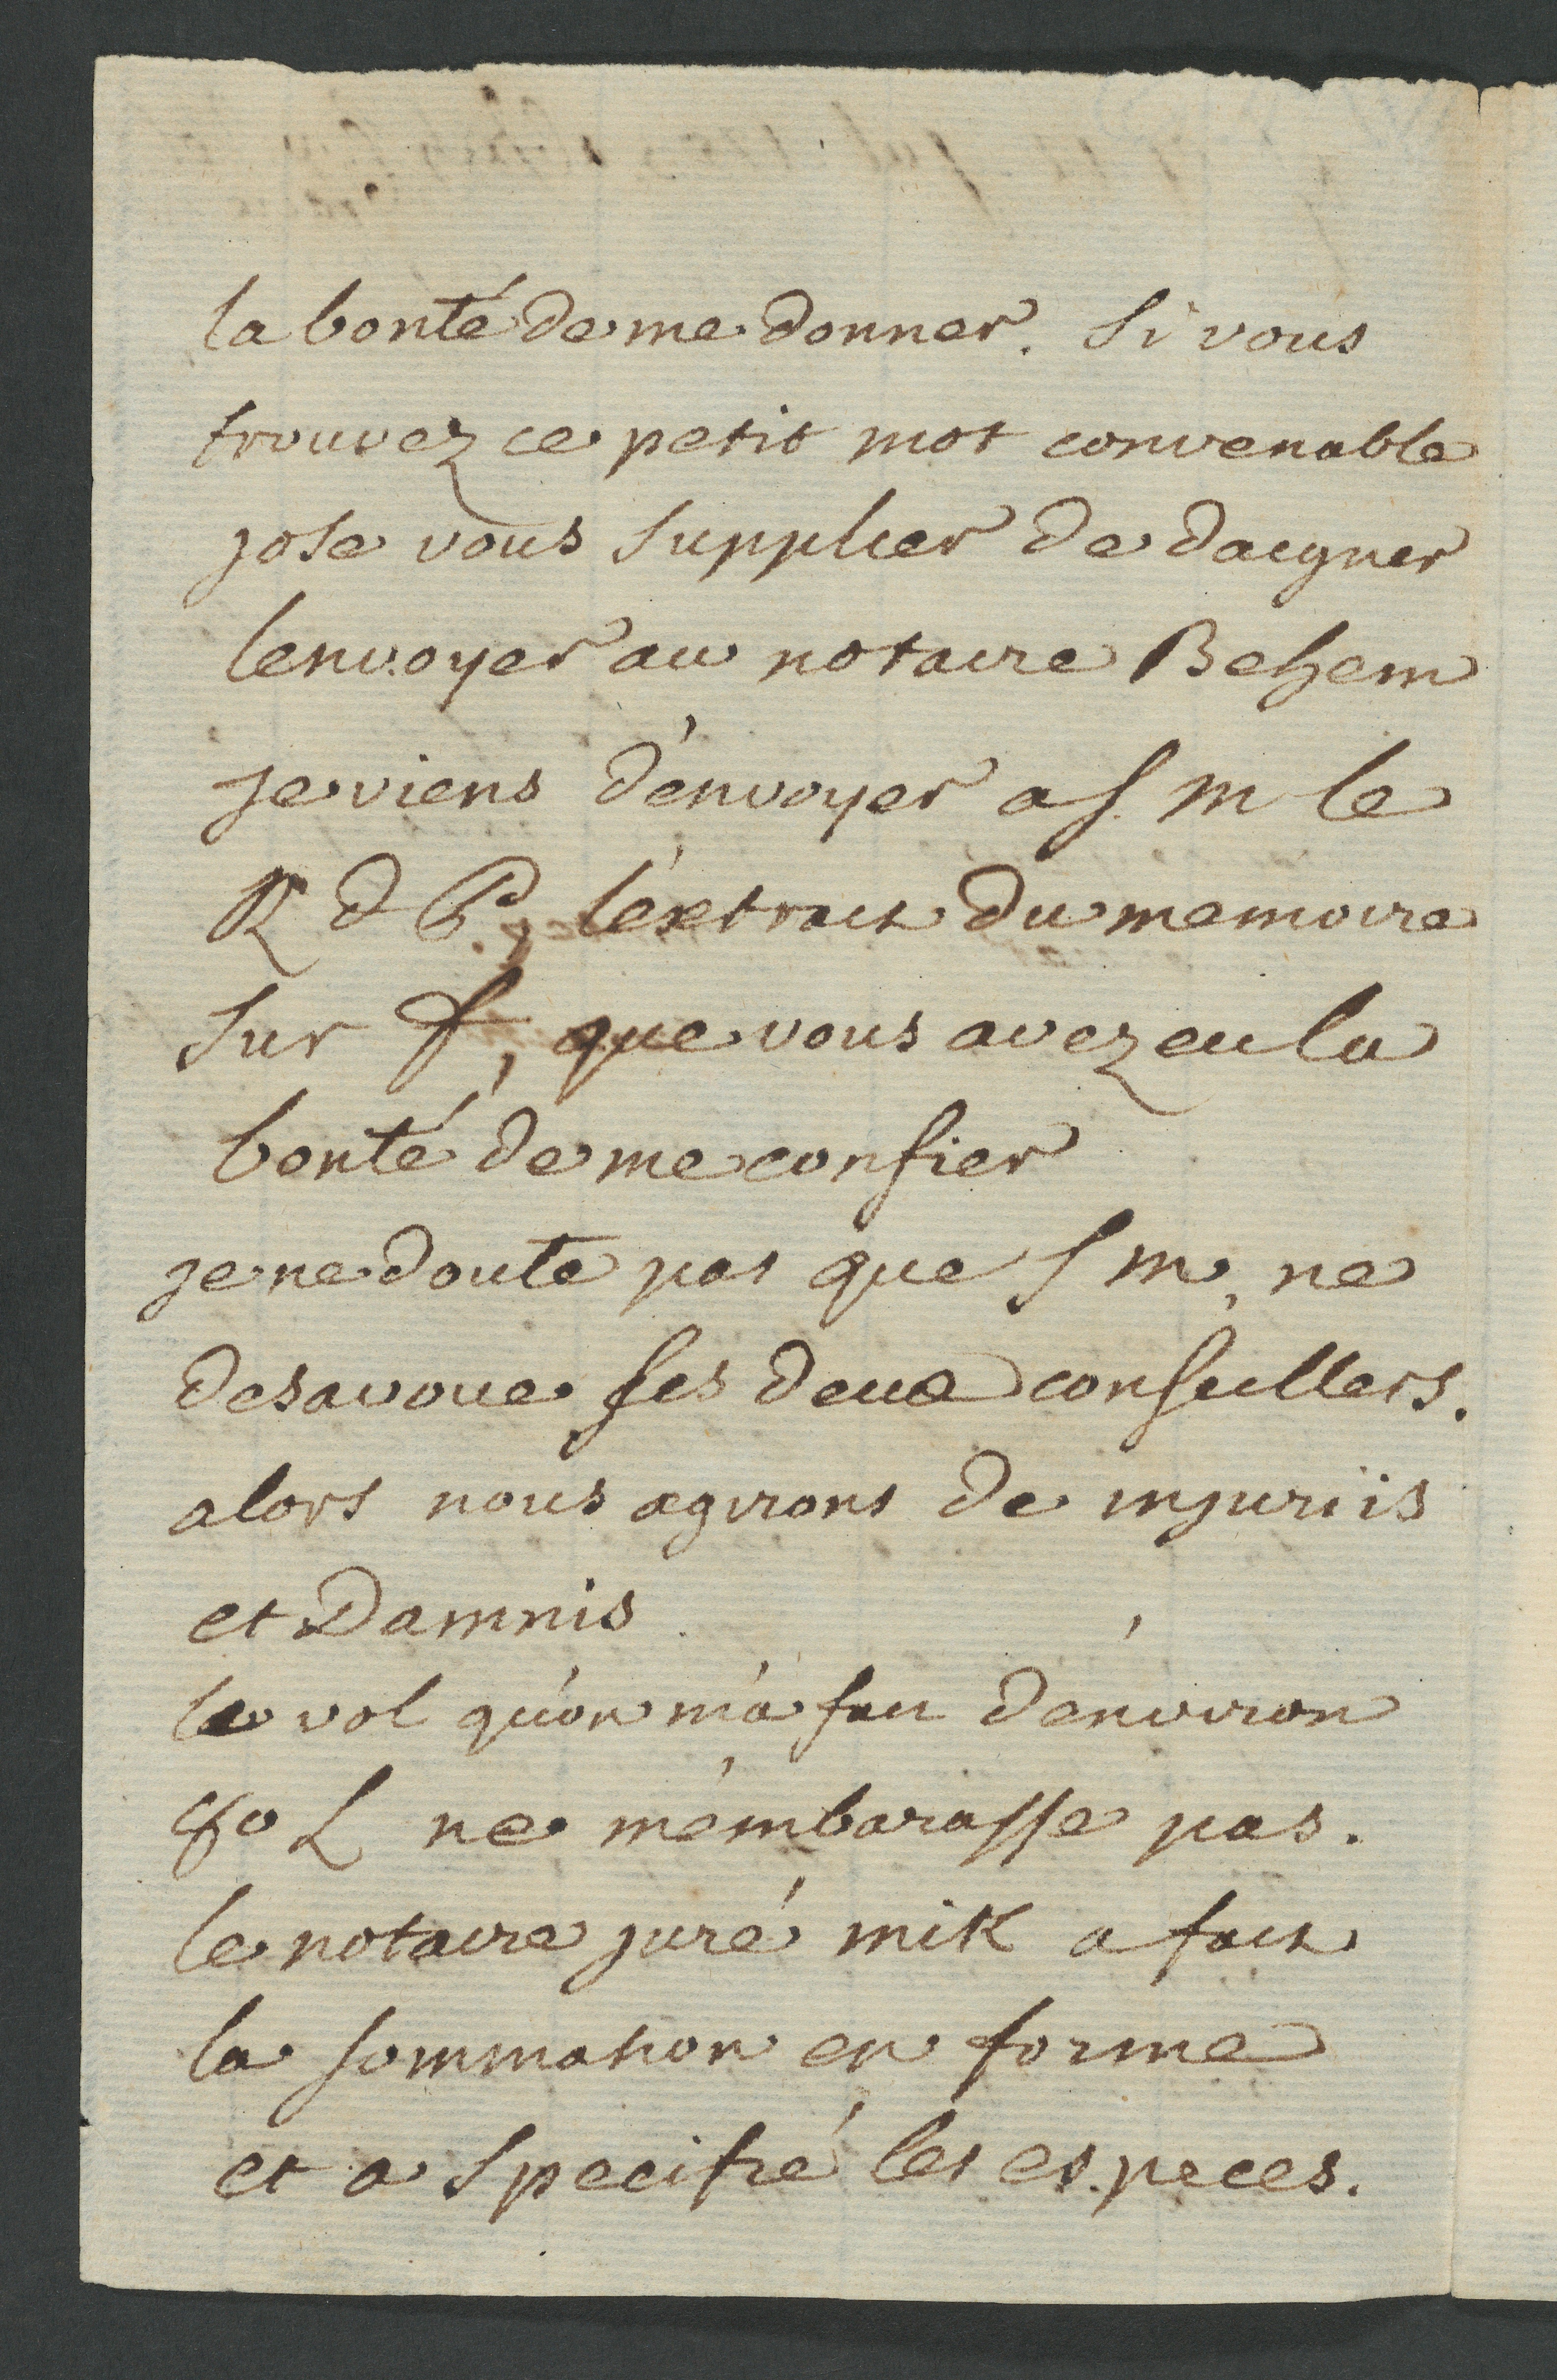 la bonté de me donner. Si vous
trouvez ce petit mot convenable
jose vous supplier de daigner
lenvoyer au notaire Behem
je viens d'envoyer a s. m le
R d P, l'extrait du memoire
sur f, que vous avez eu la
bonté de me confier
je ne doute pas que s m, ne
desavoue ses deux conseillers.
alors nous agirons de injuriis
et Damnis.
le vol qu'on m'a fait d'environ
L ne m'embarasse pas.
le notaire juré mik a fait
la sommation en forme
et a specifié les especes.